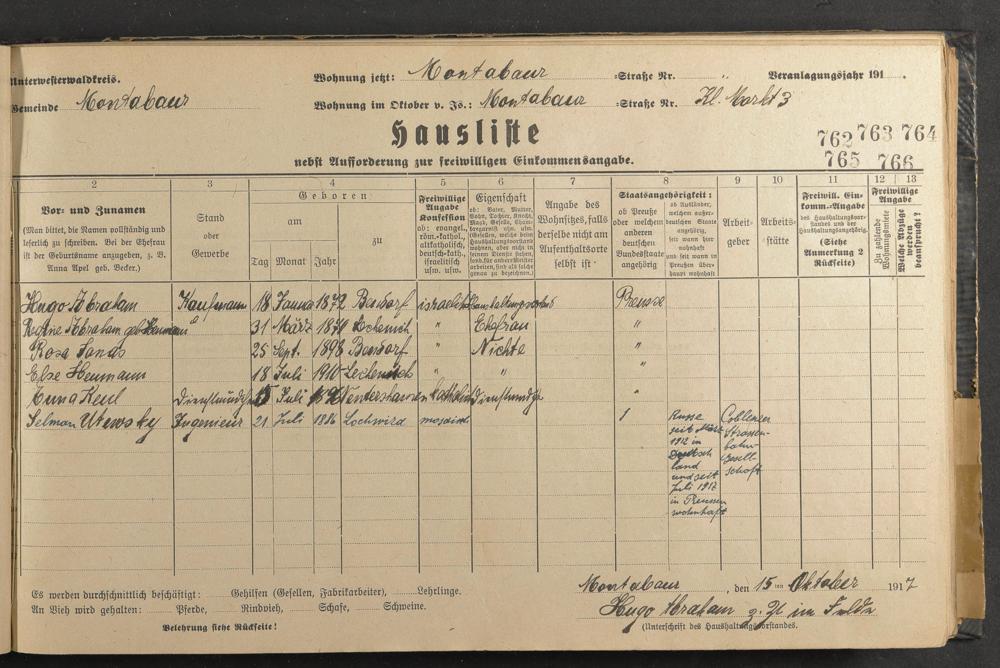 Unterwesterwaldkreis. Wohnung jetzt: Montabaur =Straße Nr. „ Veranlagungsjahr 191 .
Gemeinde Montabaur Wohnung im Oktober v. Js.: Montabaur =Straße Nr. Kl. Markt 3
Hausliste
nebst Aufforderung zur freiwilligen Einkommensangabe.
762 763 764
765 766
2 3 4 5 6 7 8 9 10 11 12 13
Vor- und Zunamen
(Man bittet, die Namen vollständig und
leserlich zu schreiben. Bei der Ehefrau
ist der Geburtsname anzugeben, z. B.
Anna Apel geb. Becker.)
Stand
oder
Gewerbe
Geboren
am
zu
Tag Monat Jahr
Freiwillige
Angabe
Konfession
ob: evangel.,
röm.-kathol.,
altkatholisch,
deutsch-kath.,
israelitisch
usw. usw.
Eigenschaft
ob: Vater, Mutter,
Sohn, Tochter, Knecht,
Magd, Geselle,
Angabe des
Wohnsitzes, falls
derselbe nicht am
Aufenthaltsorte
selbst ist
Staatsangehörigkeit:
ob Preuße
oder welchem
anderen
deutschen
Bundesstaate
angehörig
ob Ausländer,
welchem außer-
deutschen Staate
angehörig,
seit wann hier
wohnhaft
und seit wann in
Preußen über-
haupt wohnhaft
Arbeit-
geber
Arbeits-
stätte
Freiwill. Ein-
komm.-Angabe
des Haushaltungsvor-
standes und der
Haushaltungsangehörig.
(Siehe
Anmerkung 2
Rückseite)
Freiwillige
Angabe
Zu zahlende
Wohnungsmiete
Welche Abzüge
werden
beansprucht?
Hugo Abraham Kaufmann 18 Januar 1872 Bendorf israelit Haushaltungsvorstand Preusse
Regine Abraham geb. Heumann „ 31 März 1874 Lechenich „ Ehefrau „
Rosa Jonas 25 Sept. 1898 Bendorf „ Nichte „
Else Heumann 18 Juli 1910 Lechenich „ „ „
Anna Keul Dienstmädch 15 Juli katholisch Dienstmädch „
Selman Utewsky Ingenieur 21 Juli 1886 Lochwiza mosaisch 1
Russe
seit März
1912 in
Deutsch
land
und seit
Juli 1912
in Preussen
wohnhaft
Coblenzer
Strassen-
bahn-
Gesell-
schaft
Es werden durchschnittlich beschäftigt: Gehilfen (Gesellen, Fabrikarbeiter), Lehrlinge.
An Vieh wird gehalten: Pferde, Rindvieh, Schafe, Schweine.
Belehrung siehe Rückseite!
Montabaur, den 15ten Oktober 1917
Hugo Abraham z. Zt im Felde
(Unterschrift des Haushaltungsvorstandes.